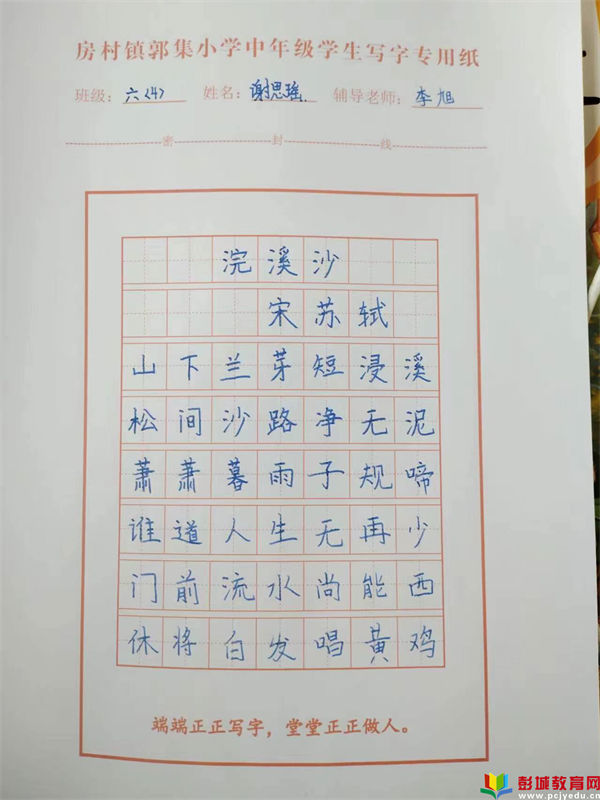 房村镇郭集小学中年级学生写字专用纸
班级：六(4) 姓名：谢思瑶 辅导老师：李旭
密 封 线
浣溪沙
宋苏轼
山下兰芽短浸溪
松间沙路净无泥
萧萧暮雨子规啼
谁道人生无再少
门前流水尚能西
休将白发唱黄鸡
端端正正写字，堂堂正正做人。
彭城教育网
www.pcjyedu.cn